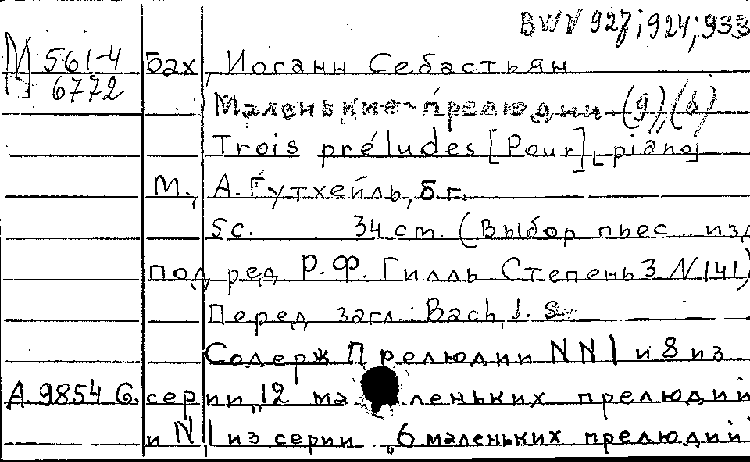 BWV 927; 924; 933
М 561-4 Бах, Иоганн Себастьян
6772
Маленькие прелюдии (9), (6)
Trois préludes [Pour] piano
М., А. Гутхейль, б.г.
5 с. 34 cm. (Выбор пьес изд
под ред Р. Ф. Гилль Степень 3 N 141)
Перед загл. Bach, J. S.
Содерж Прелюдии NN 1 и 8 из
А 9854 G. серии „12 маленьких прелюдий
и N 1 из серии „6 маленьких прелюдий